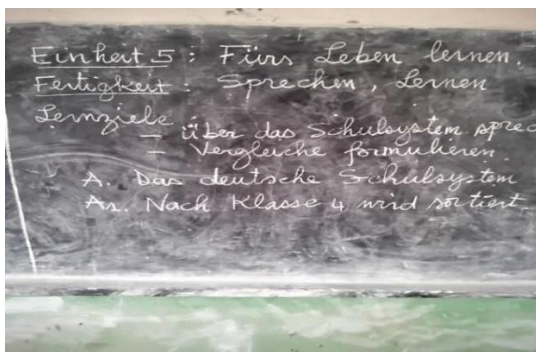 Einheit 5 : Fürs Leben lernen.
Fertigkeit : Sprechen, Lernen
Lernziele
– über das Schulsystem sprec
– Vergleiche formulieren.
A. Das deutsche Schulsystem
A1. Nach Klasse 4 wird sortiert